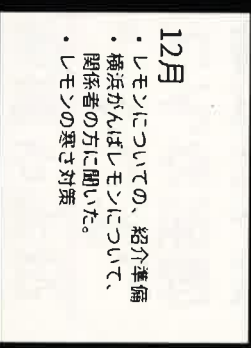 12月
・レモンについての、紹介準備
・横浜がんばレモンについて、
関係者の方に聞いた。
・レモンの寒さ対策